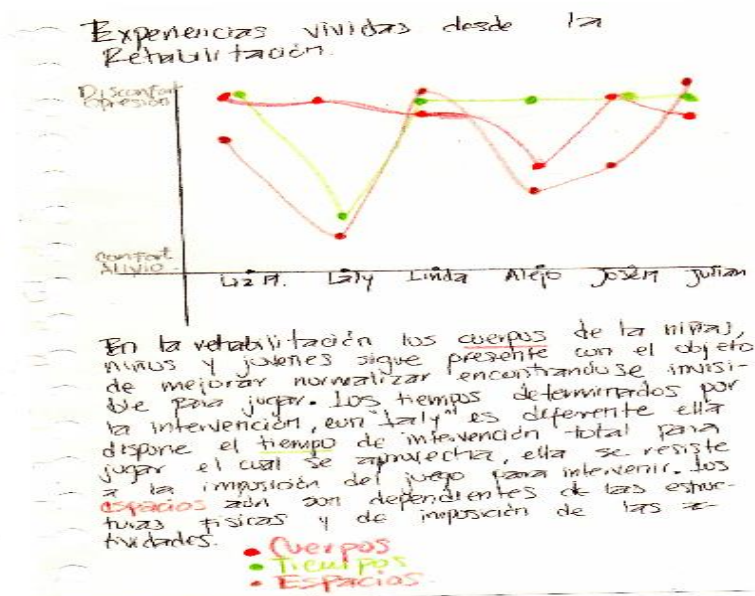 Experiencias vividas desde la
Rehabilitación.
Disconfort
Opresión
Confort
Alivio
Liz M. Laly Linda Alejo José M Julian
En la rehabilitación los cuerpos de la niñas,
niños y jovenes sigue presente con el objeto
de mejorar normalizar encontrandose invisi-
ble para jugar. Los tiempos determinados por
la intervención, con "Laly" es diferente ella
dispone el tiempo de intervención total para
jugar el cual se aprovecha, ella se resiste
a la imposición del juego para intervenir. Los
espacios aún son dependientes de las estruc-
turas físicas y de imposición de las a-
tividades.
Cuerpos
Tiempos
Espacios.